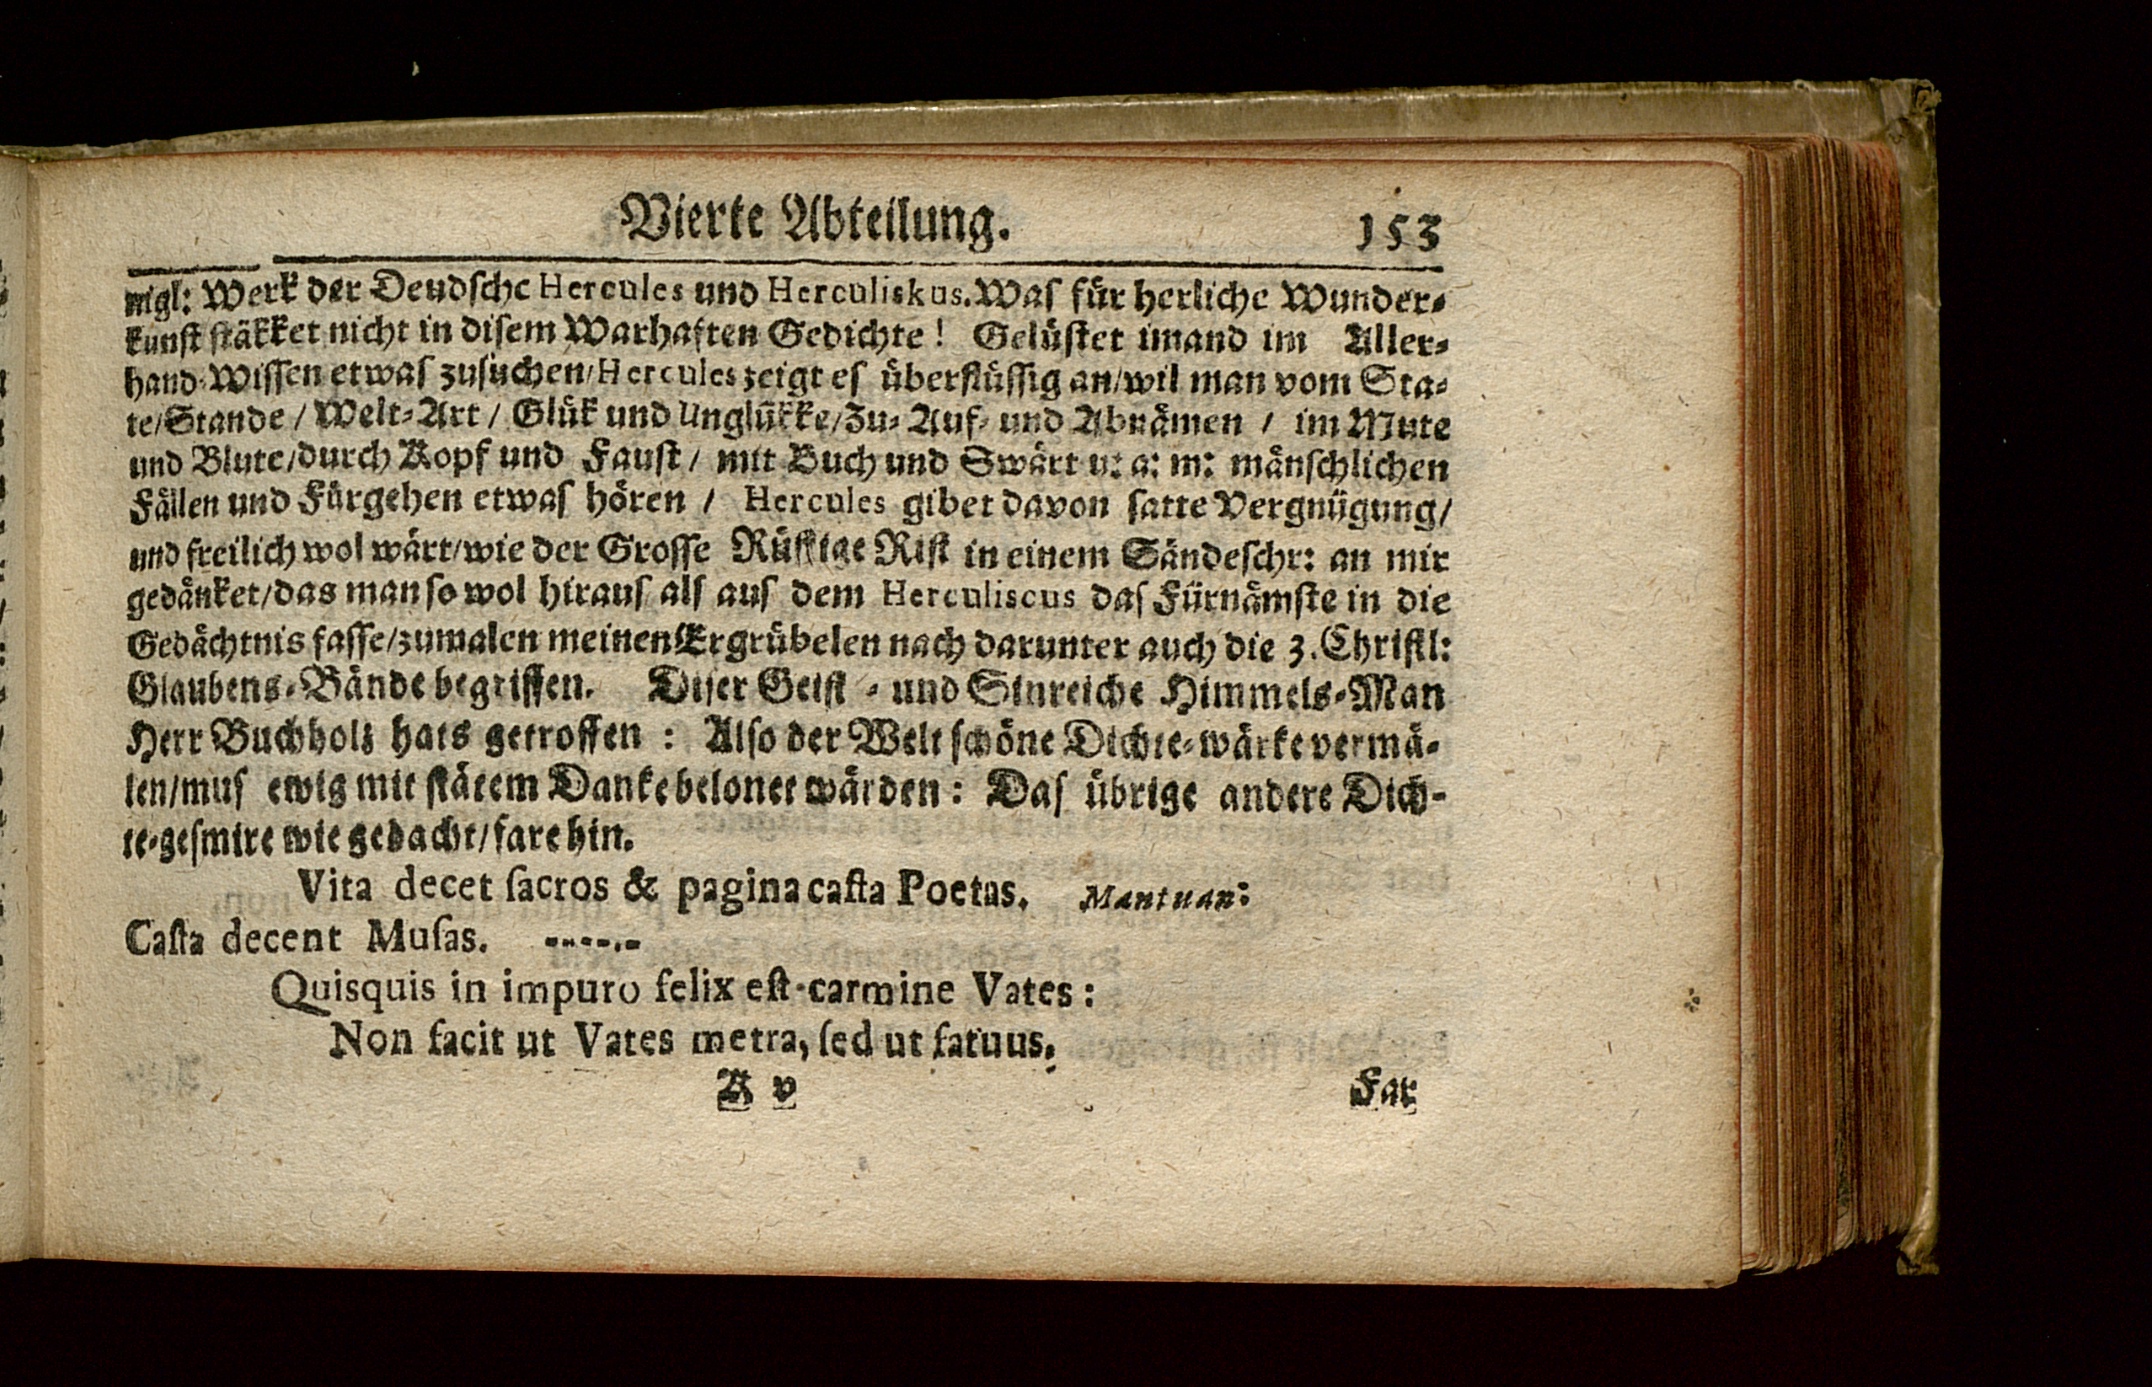 Vierte Abteilung. 153
nigl: Werk der Deudſche Hercules und Herculiskus. Was für herliche Wunder-
kunſt ſtäkket nicht in diſem Warhaften Gedichte! Gelüſtet imand im Aller-
hand-Wiſſen etwaſ zuſuchen/Hercules zeigt eſ überflüſſig an/wil man vom Sta-
te/Stande / Welt-Art / Glük und Unglükke/Zu- Auf- und Abnämen / im Mute
und Blute/durch Kopf und Fauſt / mit Buch und Swärt u: a: m: mänſchlichen
Fällen und Fürgehen etwaſ hören / Hercules gibet davon ſatte Vergnügung/
und freilich wol wärt/wie der Groſſe Rüſtige Riſt in einem Sändeſchr: an mir
gedänket/das man ſo wol hirauſ alſ auſ dem Herculiscus daſ Fürnämſte in die
Gedächtnis faſſe/zumalen meinen Ergrübelen nach darunter auch die 3. Chriſtl:
Glaubens-Bände begriffen. Diſer Geiſt - und Sinreiche Himmels-Man
Herr Buchholz hats getroffen : Alſo der Welt ſchöne Dichte-wärke vermä-
len/muſ ewig mit ſtätem Danke belonet wärden : Daſ übrige andere Dich-
te-geſmire wie gedacht/fare hin.
Vita decet ſacros & pagina caſta Poetas. Mantuan:
Caſta decent Muſas. ------
Quisquis in impuro felix eſt carmine Vates :
Non facit ut Vates metra, ſed ut fatuus.
K v Far